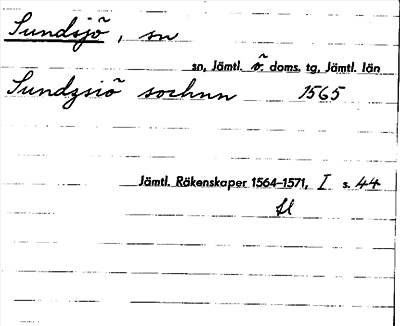 Sundsjö, sn
sn, Jämtl. ö. doms. tg, Jämtl. län
Sundzsiö sochnn 1565
Jämtl. Räkenskaper 1564–1571, I s. 44